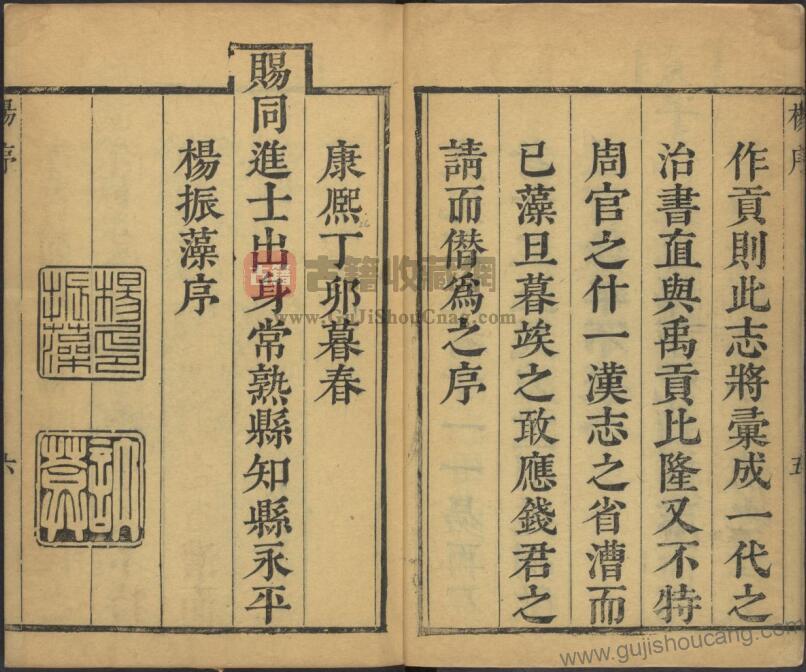 楊序 五
作貢則此志將彚成一代之
治書直與禹貢比隆又不特
周官之什一漢志之省漕而
已藻旦暮竢之敢應錢君之
請而僭為之序
康熈丁夘暮春
賜同進士出身常熟縣知縣永平
楊振藻序
楊印振藻
楊序 六
古籍
古籍收藏網
www.GuJiShouCang.com
www.gujishoucang.com